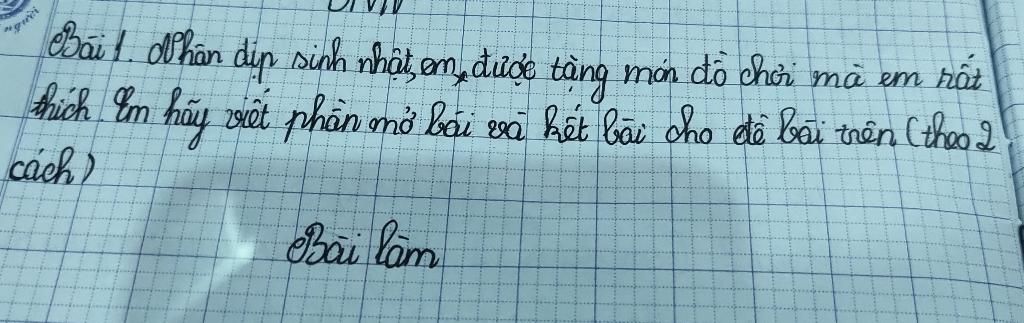 người
Bài 1. Nhân dịp sinh nhật, em được tặng món đồ chơi mà em rất
thích. Em hãy viết phần mở bài và kết bài cho đề bài trên (theo 2
cách)
Bài làm